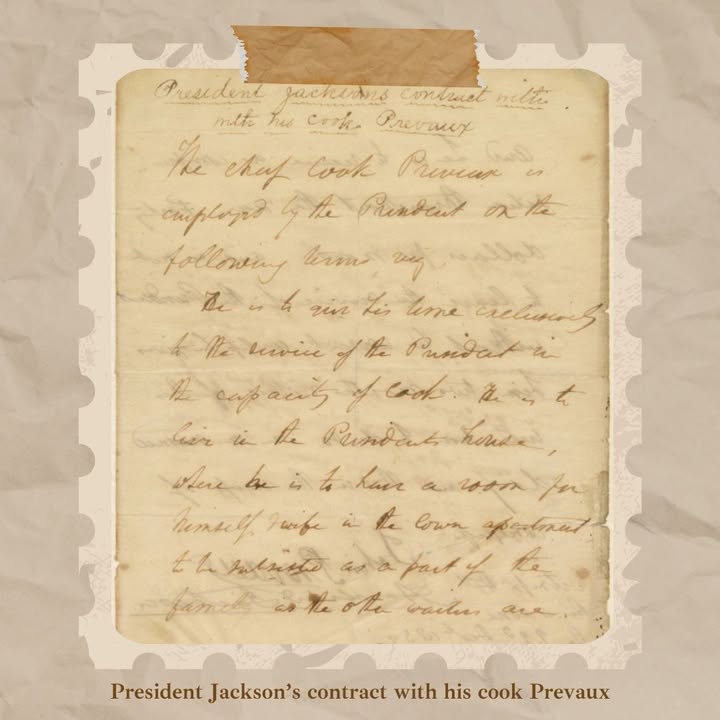 President Jacksons contract with
with his cook Prevaux
The chief Cook Preveux is
employed by the President on the
following terms, viz.
He is to give his time exclusively
to the service of the President in
the capacity of Cook. He is to
live in the Presidents house,
where he is to have a room for
himself & wife in the lower apartment
to be subsisted as a part of the
family as the other waiters are.
President Jackson's contract with his cook Prevaux